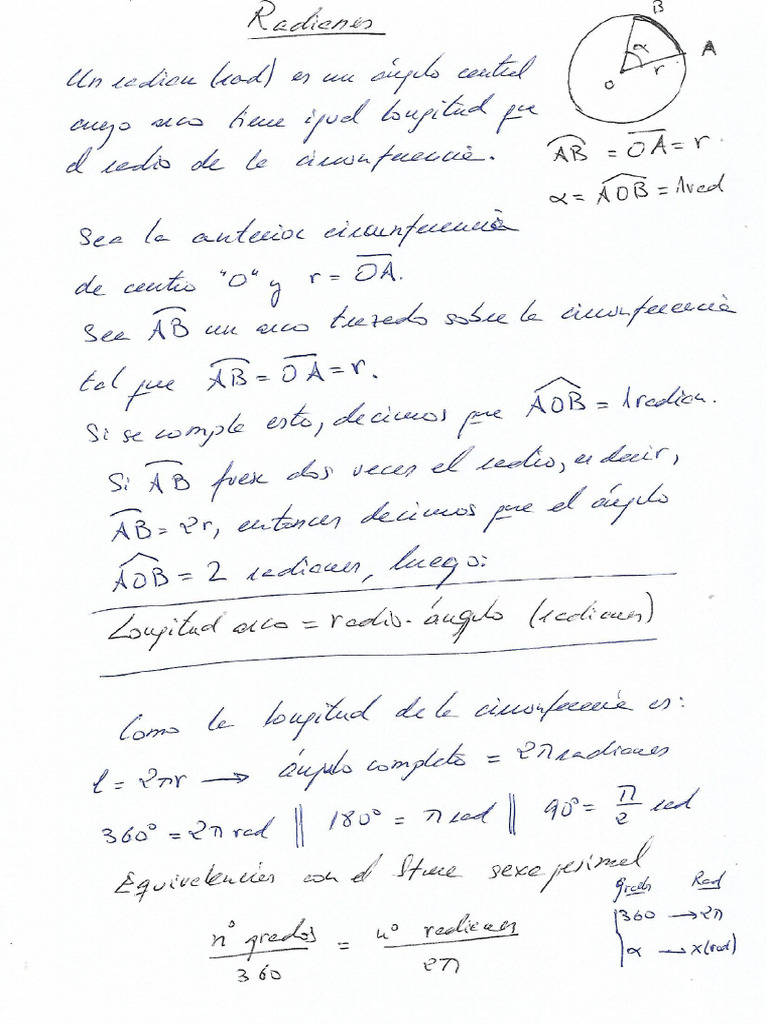 Radianes
B
α
A
O
r
Un radian (rad) es un ángulo central
cuyo arco tiene igual longitud que
el radio de la circunferencia.
AB = OA = r
α = AOB = 1 rad
Sea la anterior circunferencia
de centro "O" y r = OA.
Sea AB un arco trazado sobre la circunferencia
tal que AB = OA = r.
Si se comple esto, decimos que AOB = 1 radian.
Si AB fuese dos veces el radio, es decir,
AB = 2r, entonces decimos que el ángulo
AOB = 2 radianes, luego:
Longitud arco = radio · ángulo (radianes)
Como la longitud de la circunferencia es:
l = 2πr → ángulo completo = 2π radianes
360° = 2π rad || 180° = π rad || 90° = π/2 rad
Equivalencias con el Stme sexagesimal
nº grados / 360 = nº radianes / 2π
grados Rad
360 → 2π
α → x (rad)